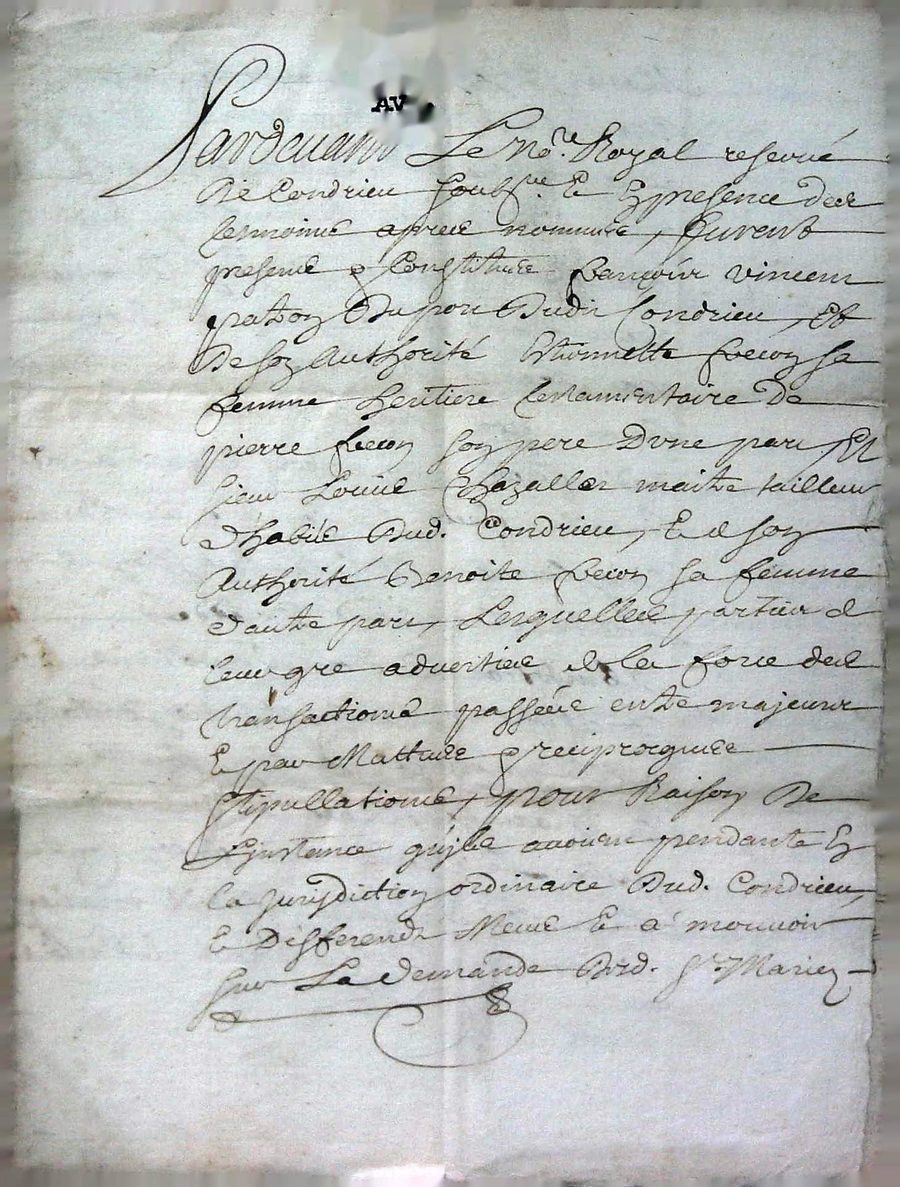 AV
Pardeuant Le No.re Royal reserué
De Condrieu soubs.ne Et En presence des
tesmoins apres nommés, furent
presens & Constitues françois vincent
patron Du port Dudit Condrieu, Et
De son Authorité Ethiennette frecon sa
femme heritiere testamentaire de
pierre frecon son pere D'vne part, Et
sieur Louis Chazalles maitre tailleur
d'habis Dud. Condrieu, Et de son
Authorité Benoite frecon sa femme
d'autre part, Lesquelles parties de
leur gre aduerties de la force des
transactions passées entre majeurs
Et par Mattues & reciproques
stipullations, pour Raison De
L'instance qu'ils auoient pendante En
la Jurisdiction ordinaire Dud. Condrieu,
Et Differends Meus Et a mouuoir
sur La demande Dud. Sr.